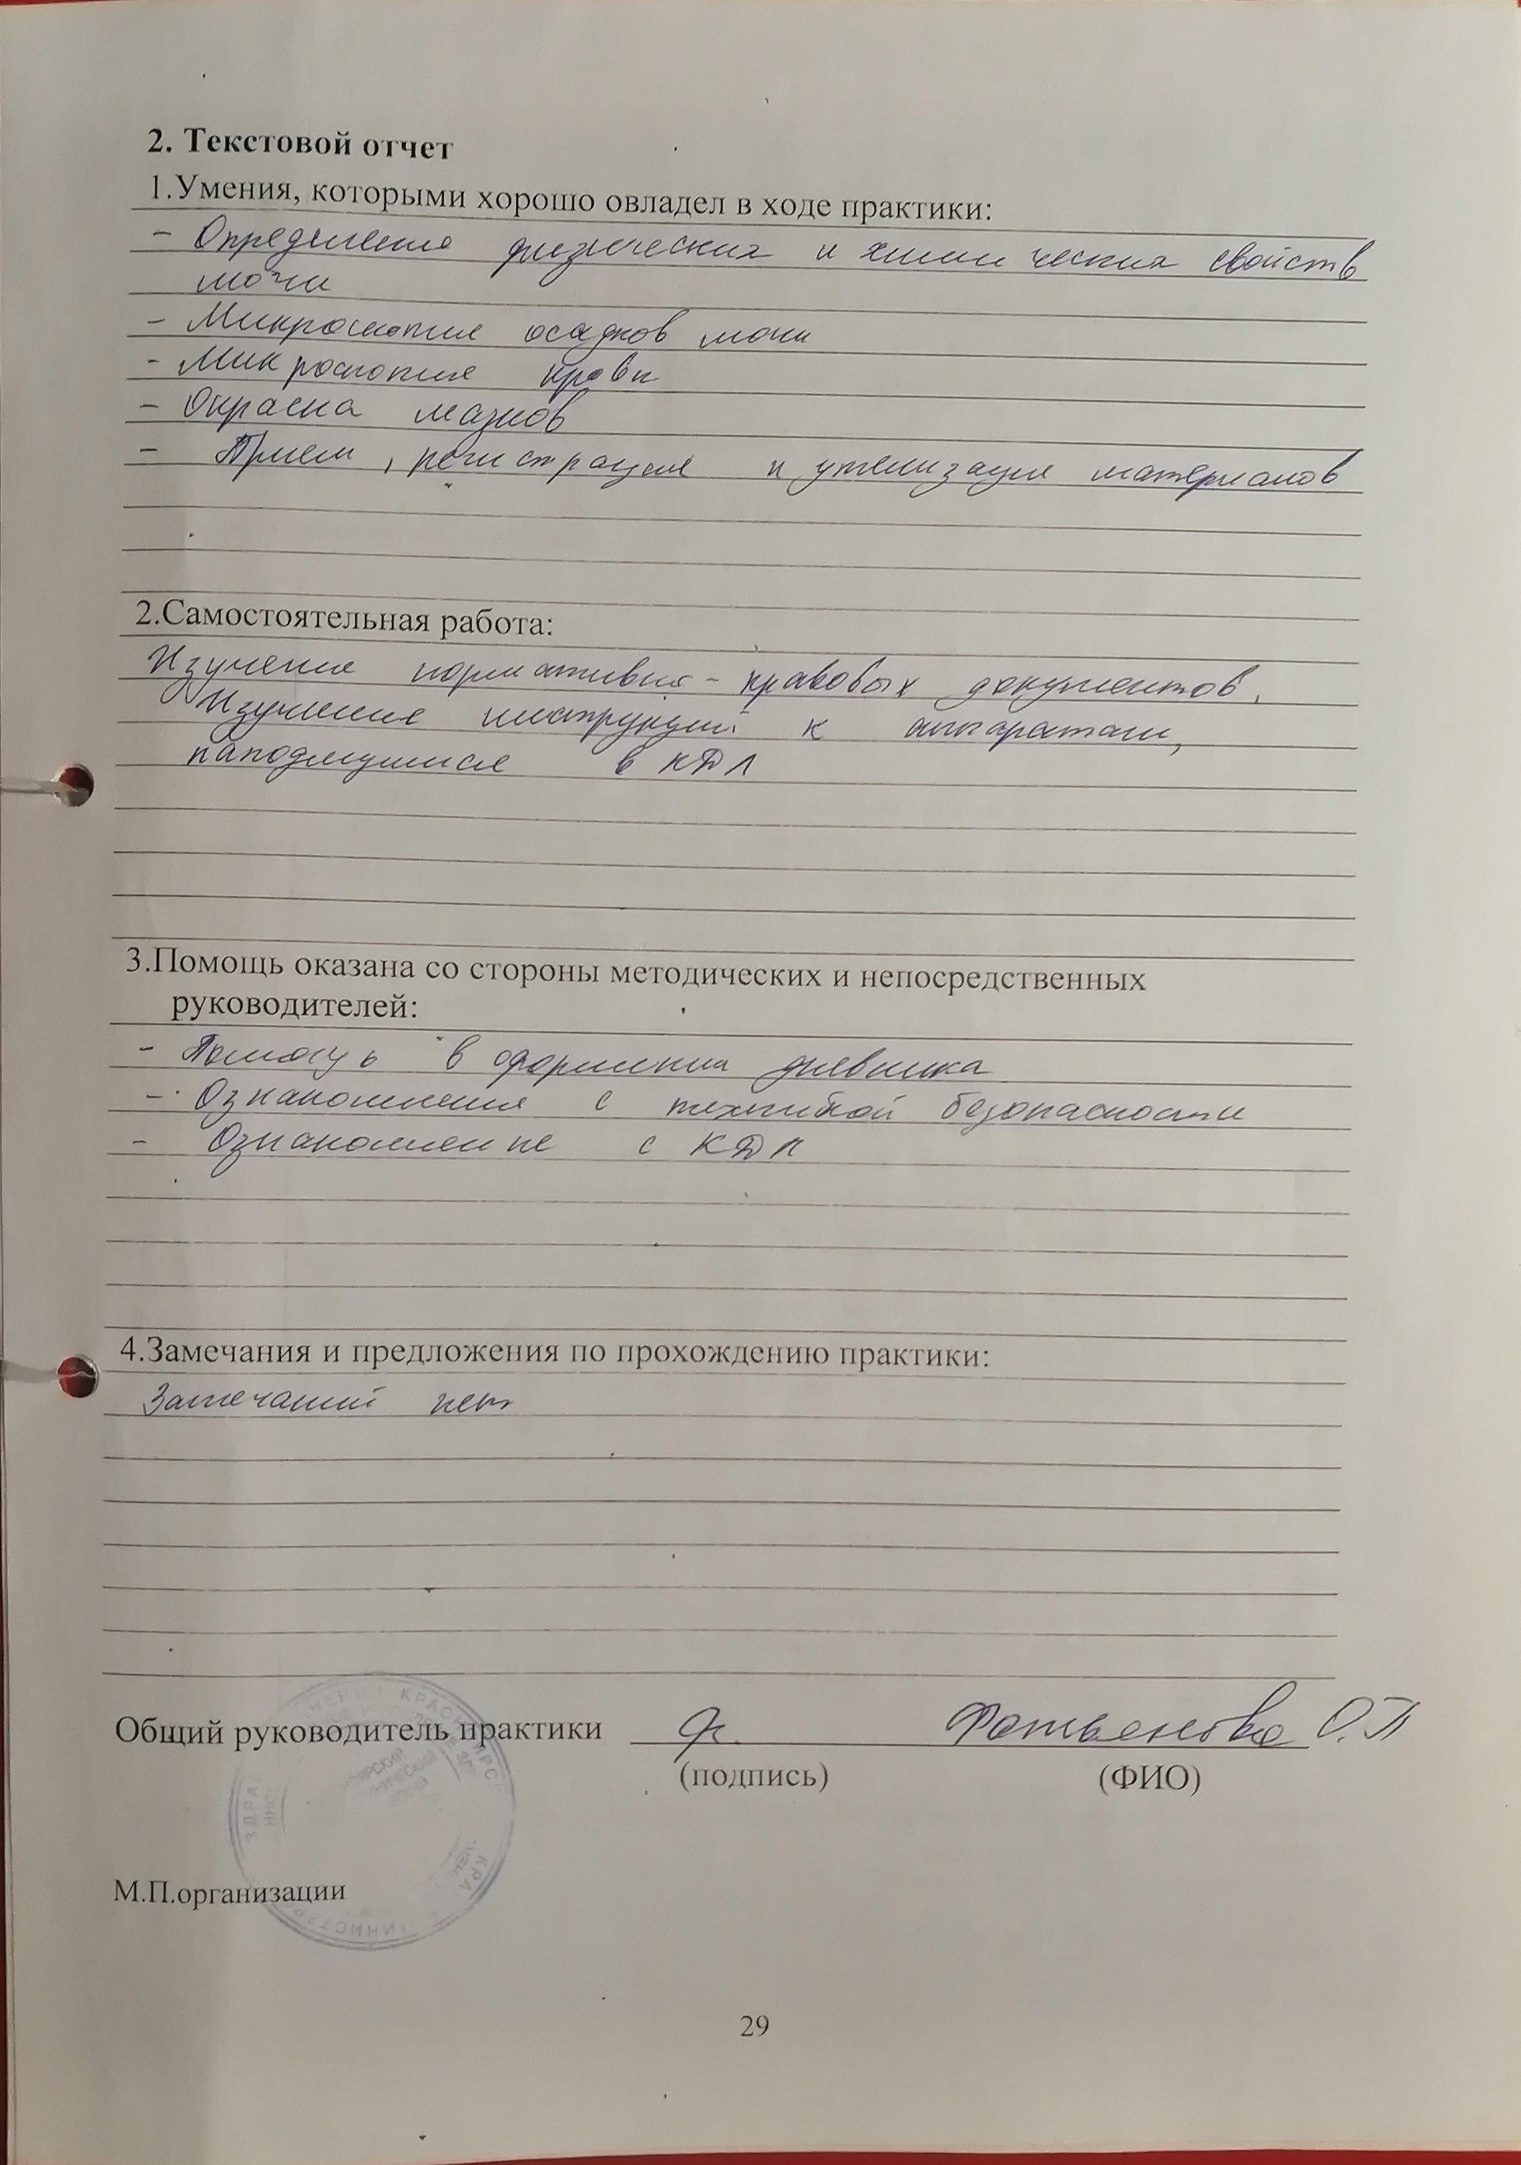 2. Текстовой отчет
1.Умения, которыми хорошо овладел в ходе практики:
- Определение физических и химических свойств
мочи
- Микроскопия осадков мочи
- Микроскопия крови
- Окраска мазков
- Прием, регистрация и утилизация материалов
2.Самостоятельная работа:
Изучение нормативно-правовых документов.
Изучение инструкций к аппаратам,
находящимися в КДЛ
3.Помощь оказана со стороны методических и непосредственных
руководителей:
- Помощь в оформлении дневника
- Ознакомления с техникой безопасности
- Ознакомление с КДЛ
4.Замечания и предложения по прохождению практики:
Замечаний нет
Общий руководитель практики Фатьянова О.П
(подпись) (ФИО)
М.П.организации
29